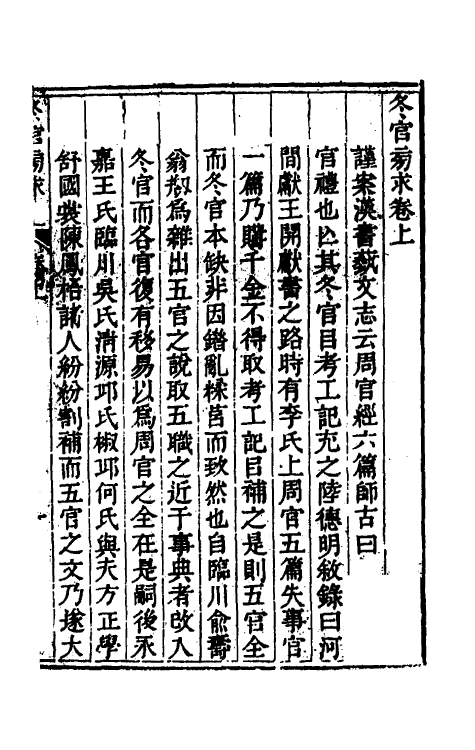 冬官旁求卷上
謹案漢書藝文志云周官經六篇師古曰
官禮也亾其冬官㠯考工記充之陸德明敘錄曰河
間獻王開獻書之路時有李氏上周官五篇失事官
一篇乃購千金不得取考工記㠯補之是則五官全
而冬官本缺非因錯亂糅莒而致然也自臨川俞壽
翁刱爲雜出五官之說取五職之近于事典者改入
冬官而各官復有移易以爲周官之全在是嗣後永
嘉王氏臨川吳氏清源邱氏椒邱何氏與夫方正學
舒國裳陳鳳梧諸人紛紛割補而五官之文乃遂大
冬官旁求